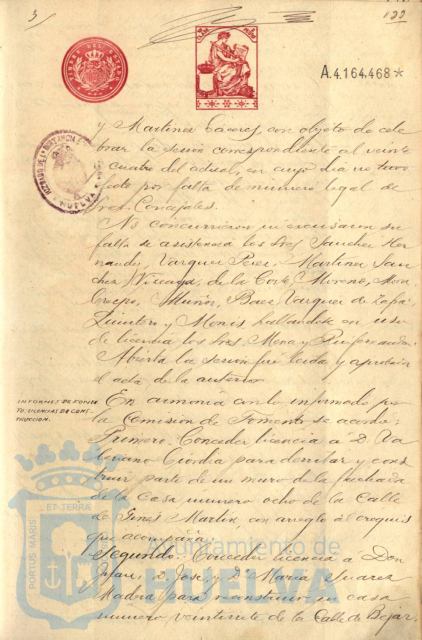 3
122
A.4.164.468*
y Martinez Caceres, con objeto de cele
brar la sesión correspondiente al veinte
y cuatro del actual, en cuyo dia no tuvo
efecto por falta de número legal de
Sres. Concejales.
No concurrieron ni escusaron su
falta de asistencia los Sres Sanchez Her
nandez, Vazquez Perez, Martinez San
chez, de la Corte, Moreno, Mora
Crespo, Muñoz, Baez, Vazquez de Zafra
Quintero y Monis hallandose en uso
de licencia los Sres Mena y
Abierta la sesión fué leida y aprobada
el acta de la anterior
INFORMES DE FOMEN
TO. LICENCIAS DE CONS-
TRUCCION.
En armonia con lo informado por
la Comision de Fomento se acordó:
Primero: Conceder licencia a D. Va
leriano Ciordia para derribar y cons
truir parte de un muro de la fachada
de la casa número ocho de la Calle
de Ginés Martin, con arreglo al croquis
que acompaña.
Segundo: Conceder licencia a Don
Juan, D. José, y Dª Maria Suarez
Madera para reconstruir su casa
número veintisiete de la Calle de Bejar
PORTUS MARIS
ET TERRÆ
Ayuntamiento de
HUELVA